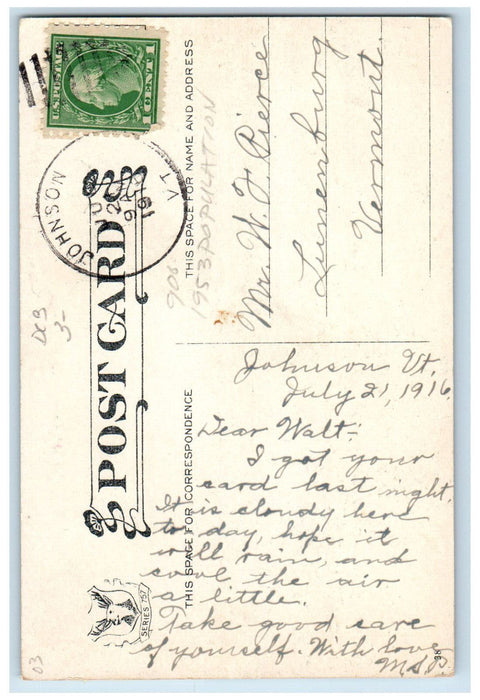 U.S. POSTAGE
1 CENT 1
JOHNSON
VT.
9 A
POST CARD
THIS SPACE FOR NAME AND ADDRESS
908
1953 POPULATION
Mr. W. F. Pierce
Lunenburg
Vermont.
3-
THIS SPACE FOR CORRESPONDENCE
Johnson Vt.
July 21, 1916.
Dear Walt:-
I got your
card last night.
It is cloudy here
to day, hope it
will rain, and
cool the air
a little.
Take good care
of yourself. With love
SERIES 757
03